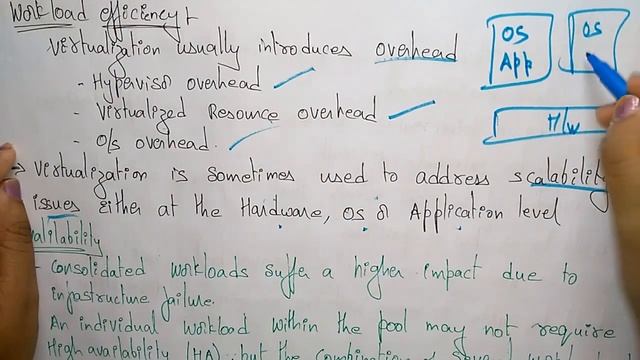 Workload efficiency
Virtualization usually introduces overhead
- Hypervisor overhead
- Virtualized Resource overhead
- O/s overhead.
→ Virtualization is sometimes used to address scalability
issues either at the Hardware, OS or Application level
- Consolidated workloads suffer a higher impact due to
infrastructure failure.
An individual workload within the pool may not require
High availability (HA), but the
OS
App
OS
H/w